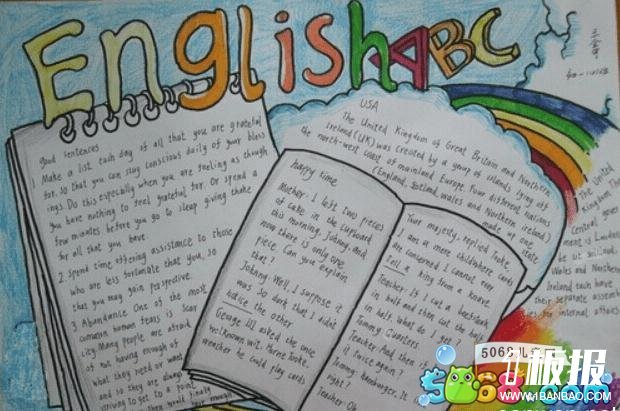 English ABC
good sentences
1 Make a list each day of all that you are grateful
for, so that you can stay conscious daily of your bless
ings. Do this especially when you are feeling as though
you have nothing to feel grateful for. Or spend a
few minutes before you go to sleep giving thanks
for all that you have
2. Spend time offering assistance to those
who are less fortunate than you, so
that you may gain perspective.
3 Abundance One of the most
common human fears is scar
city. Many people are afraid
of not having enough of
what they need or want
and so they are always
striving to get to a point
USA
The United Kingdom of Great Britain and Northern
Ireland (UK) was created by a group of islands lying off
the north-west coast of mainland Europe. Four different nations
made up one
(England, Scotland, Wales and Northern Ireland)
state
happy time
Mother: I left two pieces
of cake in the cupboard
this morning, Johnny and
now there is only one
piece. Can you explain
that?
Johnny: Well, I suppose it
was so dark that I didn't
notice the other
George III asked the once
well-known wit, Horne Tooke,
wheather he could play cards
Your majesty, replied Tooke,
I am a mere child where cards
are concerned I cannot even
Tell a king from a knave
Teacher: If I cut a beefsteak
in half and then cut the half
in half, what do I get?
Tommy: Quarters
Teacher: And then
it twice again?
Tommy: Hamburger. It
right?
Teacher: Oh
The United
Kingdom The
Central gover
ment is London
Wales and Northern
Ireland each have
their separate assemb
lies for internal affairs
5068儿
板报
WWW.1BANBAO.COM